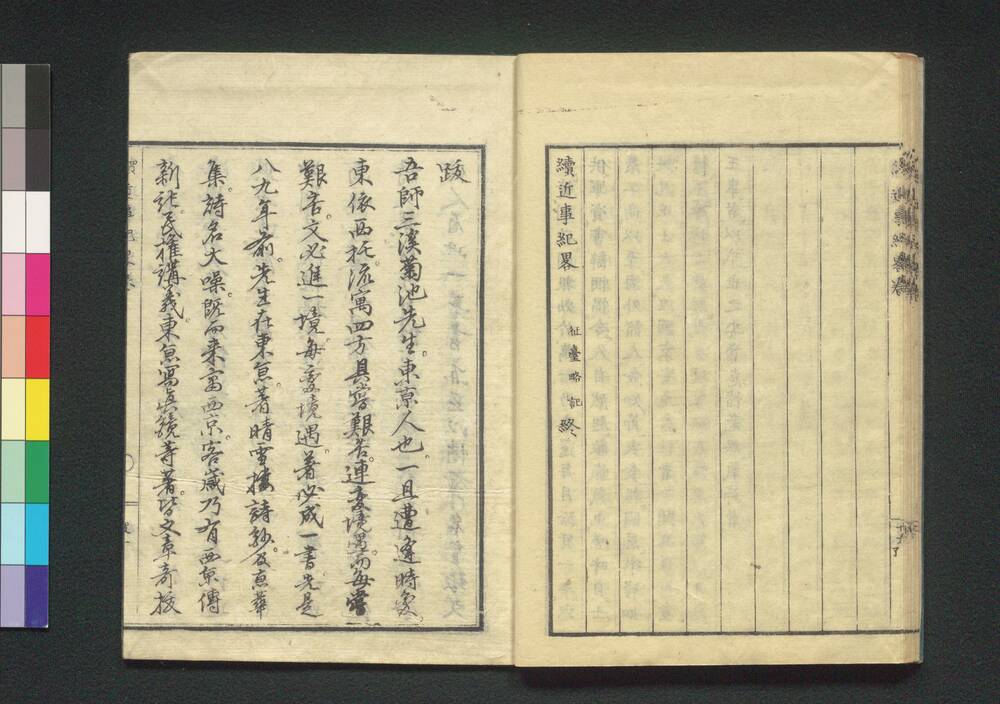 續近事紀畧 征臺略記 終
跋
吾師三溪菊池先生。東京人也。一旦遭逢時變。
東依西托。流寓四方。具嘗艱苦。連變境遇。而每嘗
艱苦。文必進一境。每變境遇。著必成一書。先是
八九年前。先生在東京。著晴雪樓詩鈔。及京華
集。詩名大噪。既而來寓西京。客歲乃有西京傳
新記。民權講義。東京寫真鏡等著。皆文章奇拔